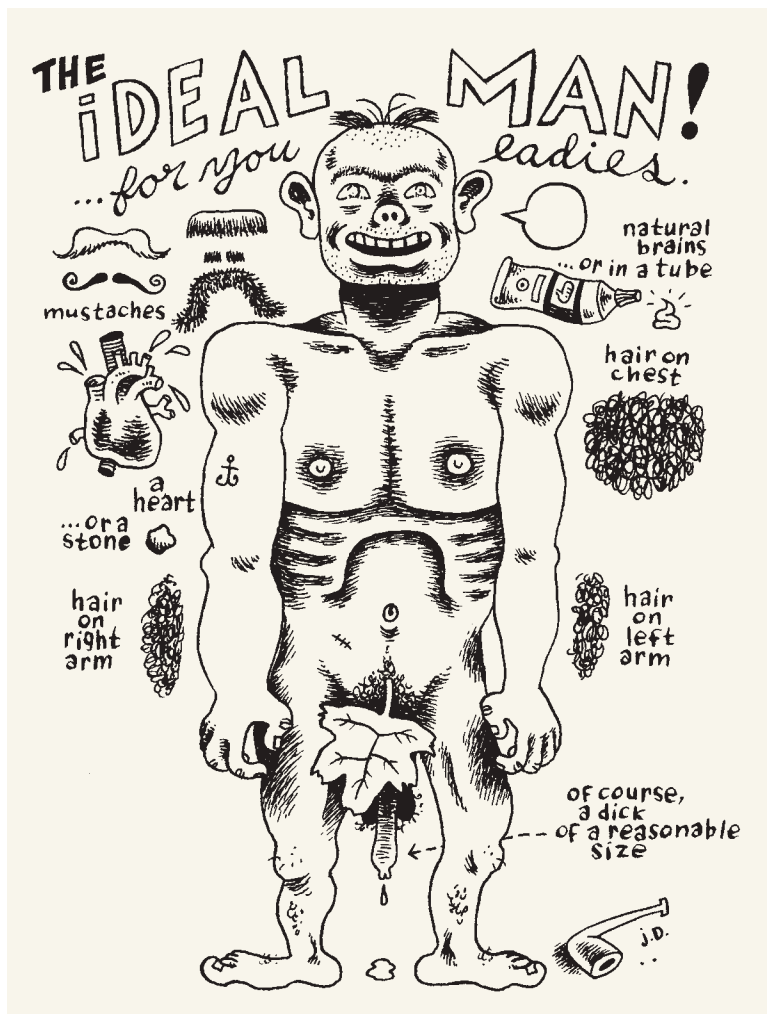 THE iDEAL MAN!
...for you eadies.
natural
brains
...or in a tube
mustaches
hair on
chest
a
heart
...or a
stone
hair
on
right
arm
hair
on
left
arm
of course,
a dick
of a reasonable
size
j.D.